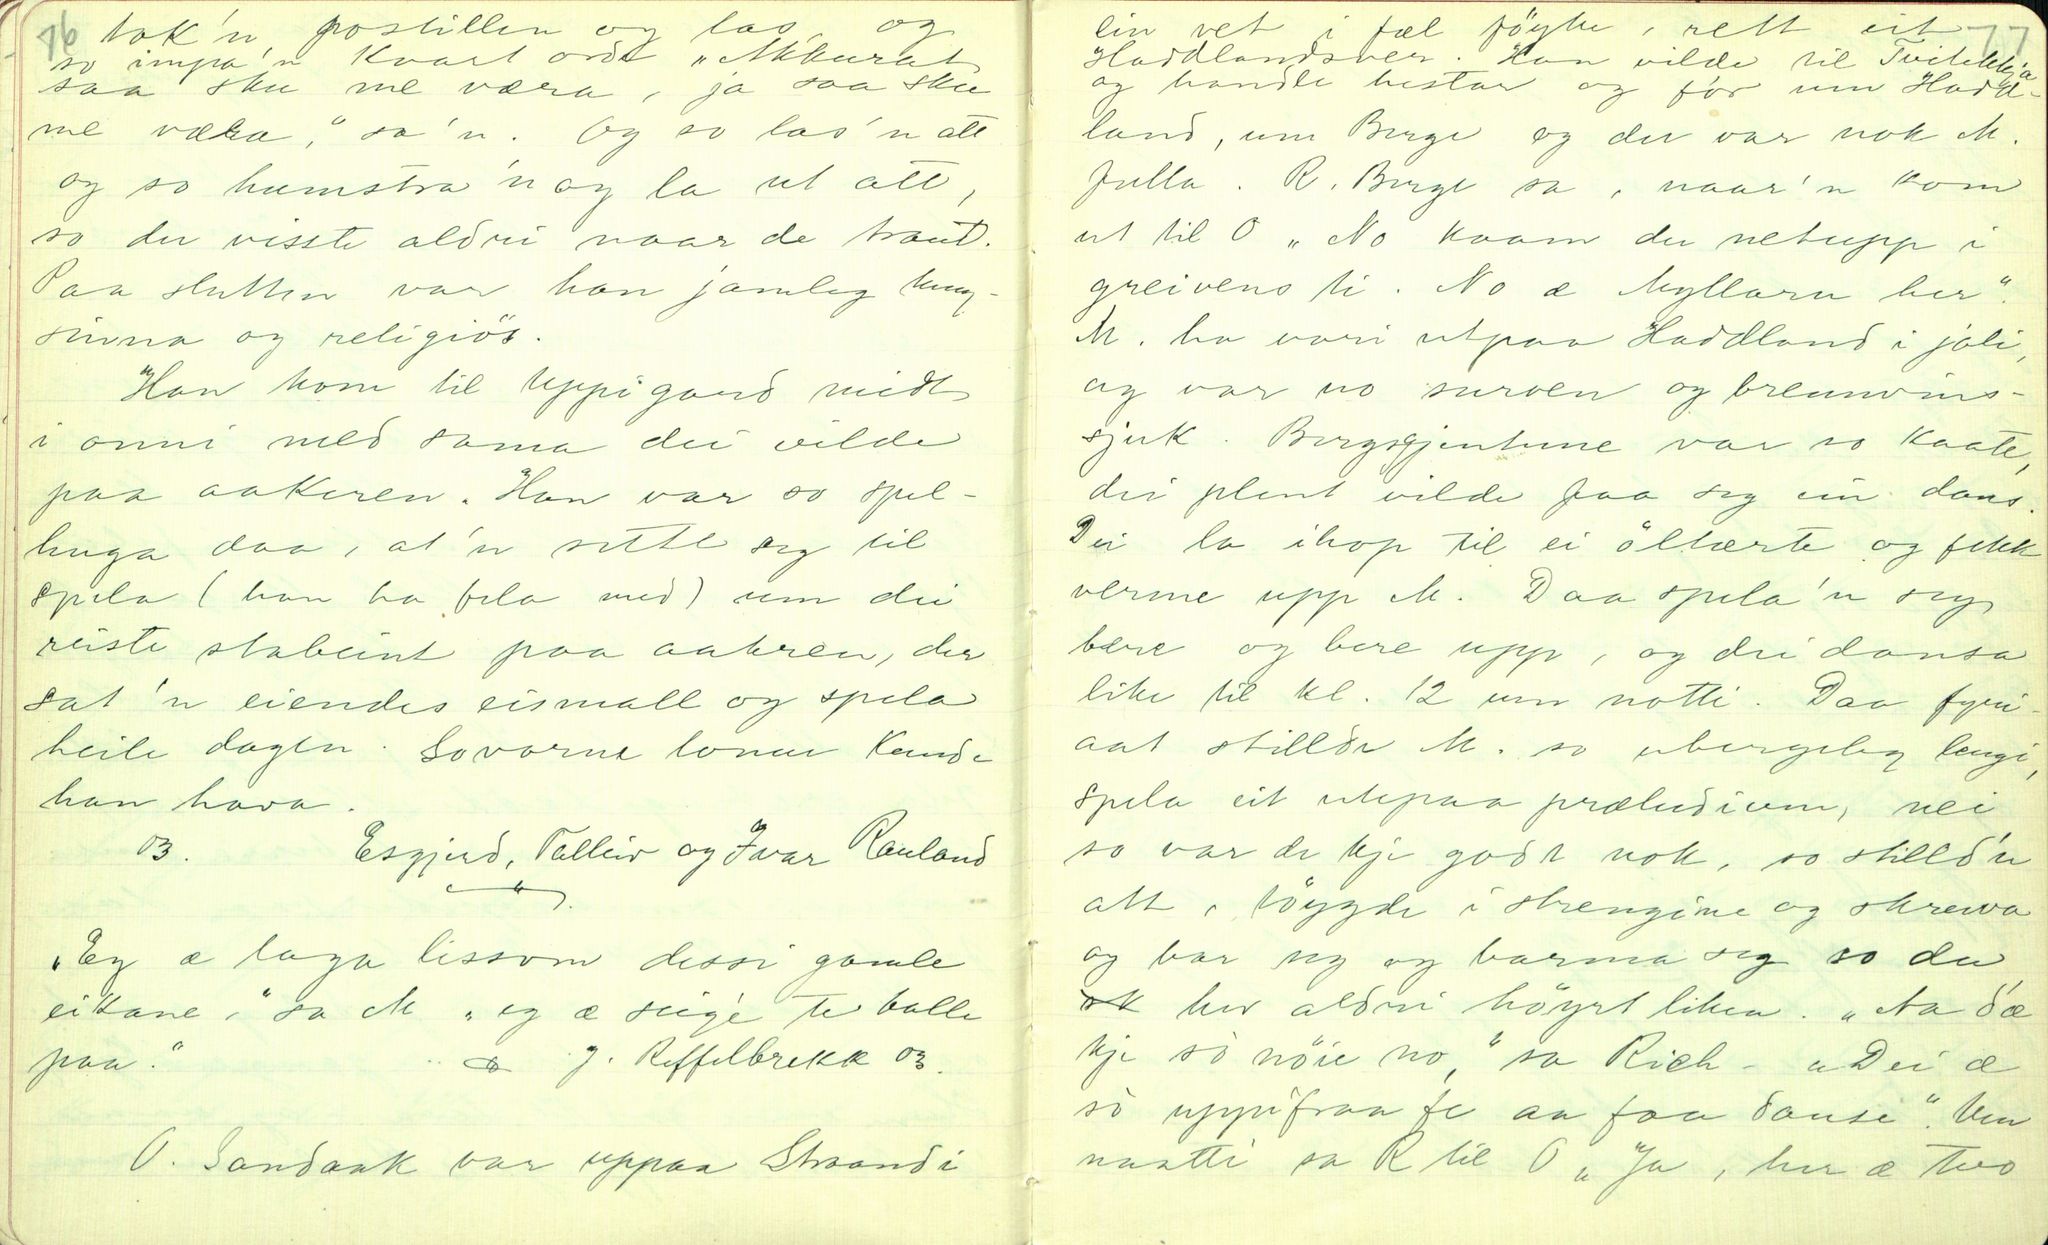 76
tok'n postillen og las, og
so impa'n kvart ord "Akkurat
saa sku me væra, ja saa sku
me væra," sa'n. Og so las'n att
og so humstra'n og la ut att,
so du visste aldri naar de traut.
Paa slutten var han jamleg tung-
sinna og religiös.
Han kom til Uppigard midt
i onni med sama dei vilde
paa aakeren. Han var so spel-
huga daa, at'n sette seg til
spela (han ha fela med) um dei
reiste stabeint paa aakren, der
sat'n eiendes eismall og spela
heile dagen. Sovorne tonar kunde
han hava.
03. Esgjerd, Talleiv og Ivar Rauland
"Eg æ laga lissom dessi gamle
eikane," sa M "eg æ seige te halle
paa." J. Reffelbrekk 03.
O. Sandaak var uppaa Straand i
77
ein vet i fæl föyke, rett eit
Haddlandsver. Han vilde til Tveitekkja
og handle hestar og fór um Hadd-
land, um Berge og der var nok M.
fulla. R. Berge sa, naar'n kom
ut til O "No kaam du netupp i
greivens ti. No æ Myllarn her".
M. ha vori utpaa Haddland i joli,
og var no surven og brennvins-
sjuk. Bergsgjentune var so kaate,
dei plent vilde faa seg ein dans.
Dei la ihop til ei öltærte og fekk
verme upp M. Daa spela'n seg
bere og bere upp, og dei dansa
like til kl. 12 um notti. Daa fyri-
aat stillde M. so ubergeleg lengi,
spela eit utepaa præludium, nei
so var de kje godt nok, so stilld'n
att, töygde i strengine og skrewa
og bar seg og barma seg so du
her aldri höyrt liken. "Aa d'æ
kje so nöie no," sa Rich - "Dei æ
so uppifraa fe aa faa danse". Um
naatti sa R til O "Ja, her æ two